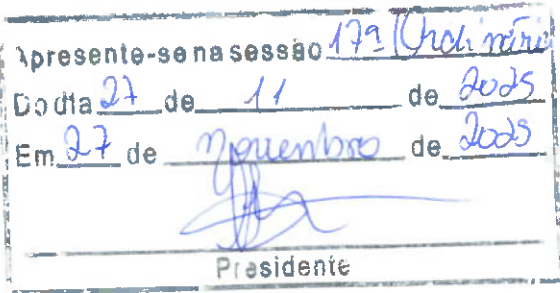 Apresente-se na sessão 17ª Ordinária
Do dia 27 de 11 de 2025
Em 27 de novembro de 2025
Presidente